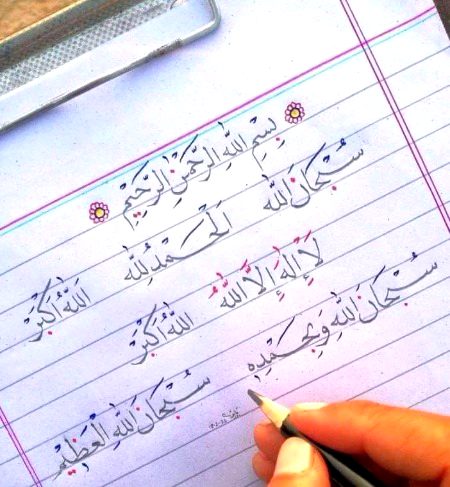 بِسْمِ اللهِ الرَّحْمٰنِ الرَّحِيْمِ
سُبْحَانَ اللهِ الْحَمْدُ لِلّٰهِ اَللهُ اَكْبَرْ
لَآ اِلٰهَ اِلَّا اللهُ اَللهُ اَكْبَرْ
سُبْحَانَ اللهِ وَبِحَمْدِهٖ
سُبْحَانَ اللهِ الْعَظِيْمِ